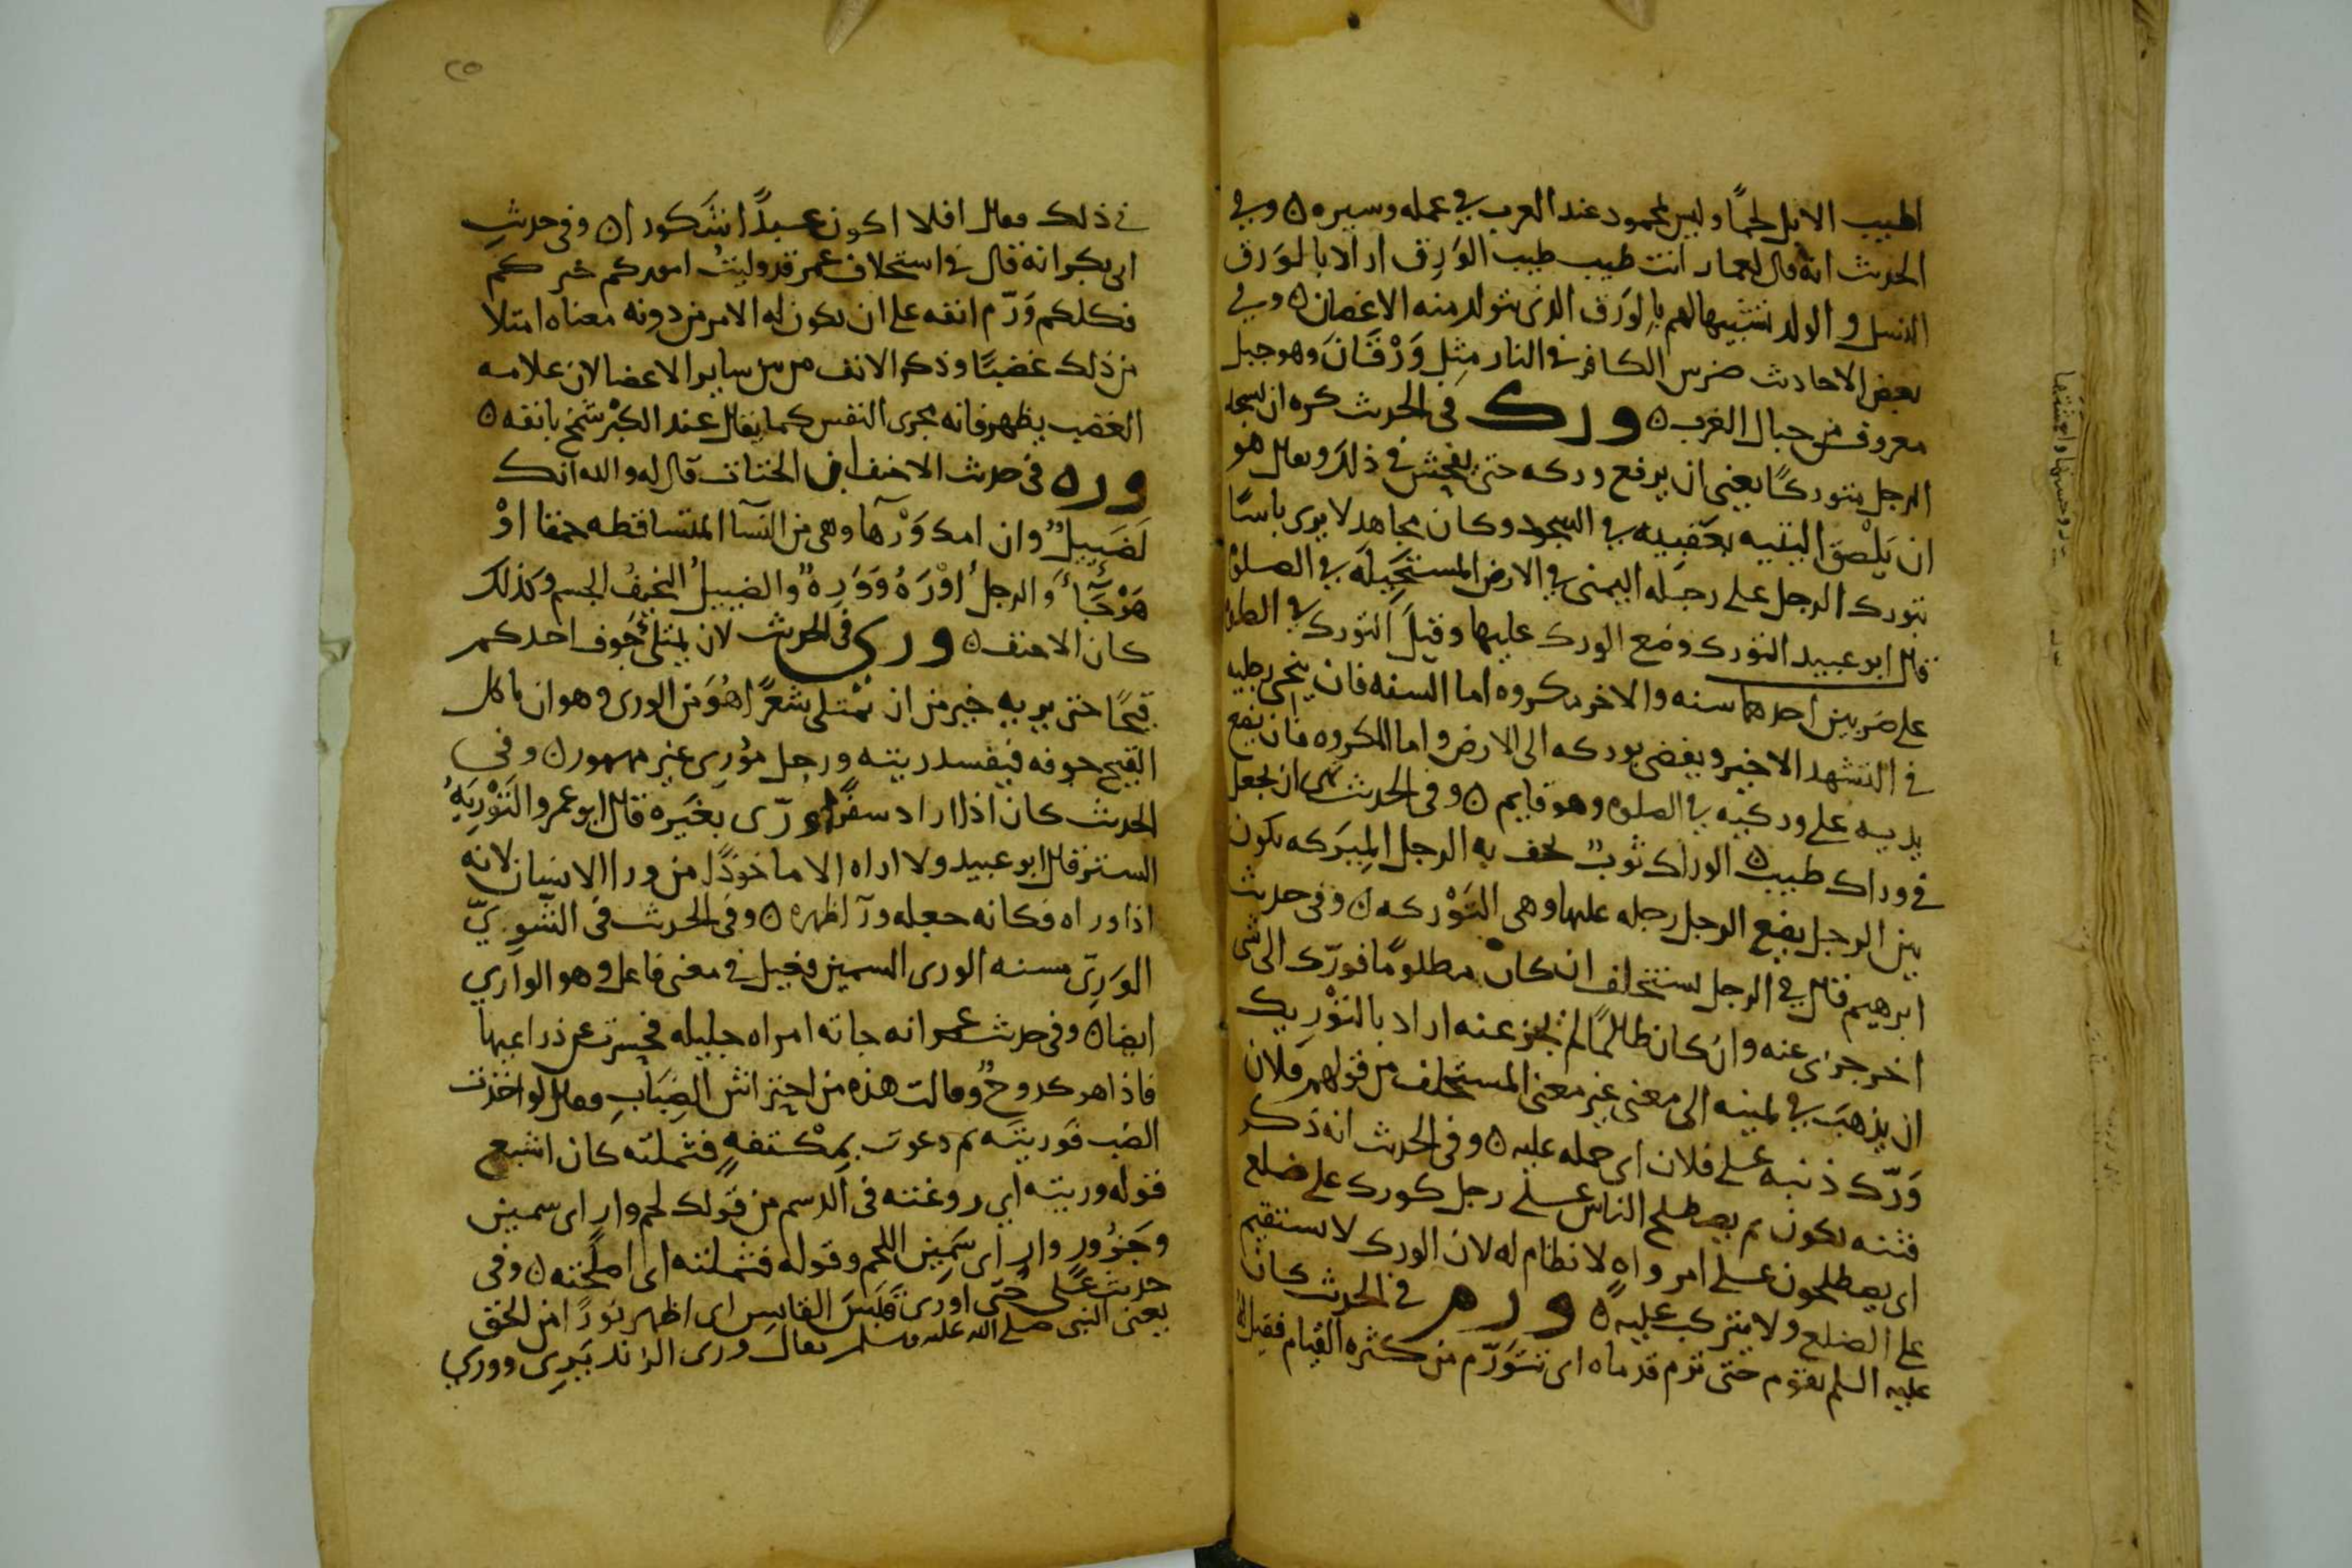 اطيب الابل لحمًا وليس بمحمود عند العرب في عمله وسيره ۵ وفي
الحديث انه قال لعمار انت طيب طيب الوَرِق اراد بالوَرَق
النسل والولد تشبيها لهم بالورَق الذي يتولد منه الاغصان ۵ وفي
بعض الاحاديث ضرس الكافر في النار مِثل وَرْقَانَ وهو جبل
معروف من جبال العرب ۵ ورك في الحديث كره ان يسجد
الرجل متوركًا يعني ان يرفع وركه حتى يفحش في ذلك ويقال هو
ان يَلْصَق اليتيه بعَقبيه في السجود وكان مجاهد لا يرى باسًا
بتورك الرجل على رجله اليمنى في الارض المستحيلة في الصلوة
قال ابو عبيد التورك وضع الورك عليها وقيل التورك في الصلوة
على ضربين احدهما سنه والاخر مكروه اما السنه فان ينحي رجليه
في التشهد الاخير ويفضى بوركه الى الارض واما المكروه فان يضع
يديه على وركيه في الصلوه وهو قايم ۵ وفي الحديث نهى ان يجعل
في وراك صليب ۵ الوراك ثوب يحف به الرجل المِيتركه يكون
بين الرجل يضع الرجل رجله عليها وهي التَوْركه ۵ وفي حديث
ابرهيم قال في الرجل يستحلف ان كان مظلومًا فورّك الى شي
اخر جزى عنه وان كان ظالمًا لم يجز عنه اراد بالتوْرِيك
ان يذهَبَ في يمينه الى معنى غير معنى المستحلف من قولهم فلان
وَرّك ذنبه على فلان اى حمله عليه ۵ وفي الحديث انه ذكر
فتنه يكون ثم يصطلح الناس على رجل كورك على ضلع
اى يصطلحون على امر واهٍ لا نظام له لان الورك لا يستقيم
على الضلع ولا يتركب عليه ۵ ورم في الحديث كان
عليه السلم يقوم حتى ترم قدماه اى تتَوَرّم من كثره القيام فقيل له
٢٥
في ذلك فقال افلا اكون عبدًا شكورا ۵ وفي حديثِ
ابي بكر انه قال في استخلاف عمر قد وليتُ اموركم خيركم
فكلكم وَرّم انفه على ان يكون له الامر من دونه معناه امتلا
من ذلك غضبًا وذكر الانف من بين ساير الاعضا لان علامه
الغضب يظهر فانه مجرى النفس كما يقال عند الكبْر شمخ بانفه ۵
وره في حديث الاحنف ابن الحتات قال له والله انك
لَضَيِيلٌ وان امك وَرْهآ وهى من النسآ المتساقطه حمقا اوْ
هَوَجًا والرجلُ اوْرَهُ وَوَرِهٌ والضييلُ النحيفُ الجسم وكذلك
كان الاحنف ۵ ورى في الحديث لان يمتلئ جوف احدكم
قيحًا حتى يريه خير من ان يمتلى شعرًا هُوَ من الورى وهو ان ياكل
القيح جوفه فيفسد ريته ورجل موْرِى غير مهموز ۵ وفي
الحديث كان اذا اراد سفرًا ورّى بغيَره قال ابو عمرو التَوْرِيَةُ
الستر قال ابو عبيد ولا اراه الا ماخوذًا من ورا الانسان لانه
اذا وراه فكانه جعله ورآ ظهره ۵ وفي الحديث في الشَوِيّ
الورِيّ مسنه الورى السمين فعيل في معنى فاعل وهو الواري
ايضا ۵ وفي حديث عمر انه جاته امراه جليله فحسرت عن ذراعيها
فاذا هو كدوحٌ وقالت هذه من احتراش الضِبَابِ فقال لو اخذت
الضب فورّيتَه ثم دعوت بمِكْتفهٍ فثملته كان اشبع
قوله وريته اى روغته في الدسم من قولك لحم وارٍ اى سمين
وجَزُور وارٍ اى سَمِين اللحم وقوله فثملته اى اصلحته ۵ وفي
حديث على حُتّى اورى قَبَسَ القابِس اى اظهر نورًا من الحق
يعنى النبي صلى الله عليه وسلم يقال ورى الزند يَرِى ووري